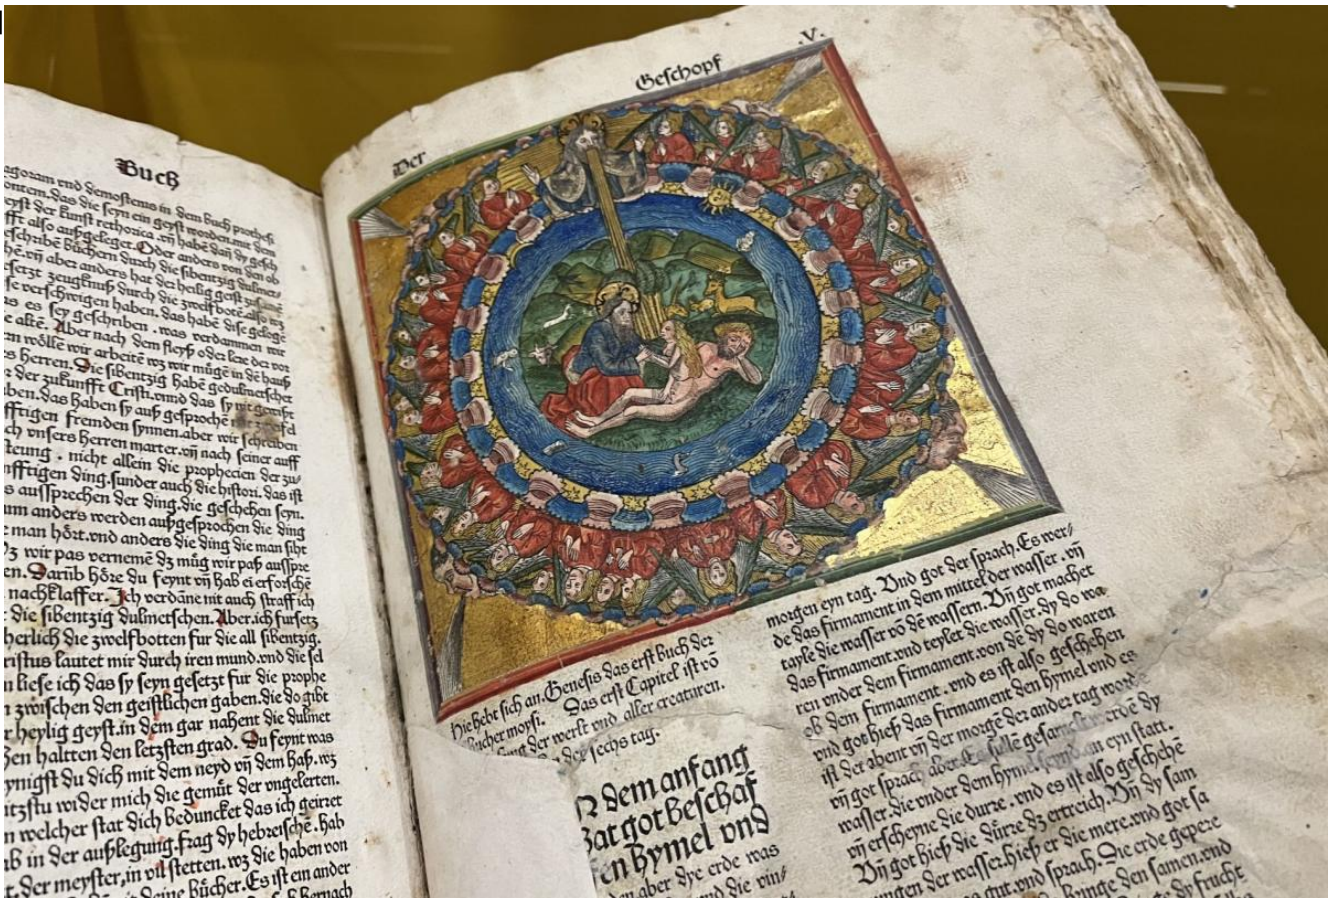 Buch
agoram vnd demostenis in dem buch prothesi
ontem. das die seyn ein geyst worden. mit dem
eyst der kunst rethorica. vñ habē dañ dy gesch
fft also außgeleget. Oder anders von den ob
eschribē büchern durch die sibentzig dulmets
hē. vñ aber anders hat der heilig geist
setzt zeugknuß durch die zwelfbotē. also wz
se verschwigen haben. das habē dise
as es sey geschriben. was verdammen wir
e altē. Aber nach dem fleyß oder lere der vor
n wöllē wir arbeitē wz wir mügē in dē hauß
s herren. Die sibentzig habē gedulmetschet
r der zukunfft Cristi. vnnd das sy nit gewißt
ben. das haben sy auß gesprochē mit
fftigen fremden synnen. aber wir schreiben
ch vnsers herren marter. vñ nach seiner auff
steung. nicht allein die prophecien der zu/
nfftigen ding. sunder auch die histori. das ist
s aussprechen der ding. die geschehen seyn.
um anders werden außgesprochen die ding
e man hört. vnd anders die ding die man siht
z wir pas vernemē dz müg wir paß ausspre
en. Darūb höre du feynt vñ hab ei erforschē
nachklaffer. Ich verdāne nit auch straff ich
die sibentzig dulmetschen. Aber. ich fursetz
herlich die zwelfbotten fur die all sibentzig.
ristus lautet mir durch iren mund. vnd die sel
n liese ich das sy seyn gesetzt fur die prophe
n zwischen den geistlichen gaben. die do gibt
r heylig geyst. in dem gar nahent die dulmet
en haltten den letzsten grad. Du feynt was
ynigst du dich mit dem neyd vñ dem haß. wz
tzstu wider mich die gemüt der vngelerten.
n welcher stat dich beduncket das ich geirret
ab in der außlegung. frag dy hebreischē. hab
t. der meyster, in vil stetten. wz die haben von
deine bücher. Es ist ein ander
Der Geschopf .V.
Hie hebt sich an. Genesis das erst buch der
bucher moysi. Das erst Capitel ist vō
der werlt vnd aller creaturen.
der sechs tag.
N dem anfang
hat got beschaf
fen hymel vnd
den aber dye erde was
vnd die vin/
morgen eyn tag. Vnd got der sprach. Es wer/
de das firmament in dem mittel der wasser. vñ
tayle die wasser vō dē wassern. Vñ got machet
das firmament. vnd teylet die wasser. dy do wa
ren vnder dem firmament. von dē dy do waren
ob dem firmament. vnd es ist also geschehen
vnd got hieß das firmament den hymel vnd es
ist der abent vñ der morgē der ander tag wordē
vñ got sprach aber. Es süllē gesamelt werdē dy
wasser. die vnder dem hymel seynd an eyn statt.
vñ erscheyne die durre. vnd es ist also geschehē
Vñ got hieß die dürre dz ertreich. Vñ dy sam
ungen der wasser. hieß er die mere. vnd got sa
gut. vnd sprach. Die erde gepere
bringe den samen. vnd
dy frucht